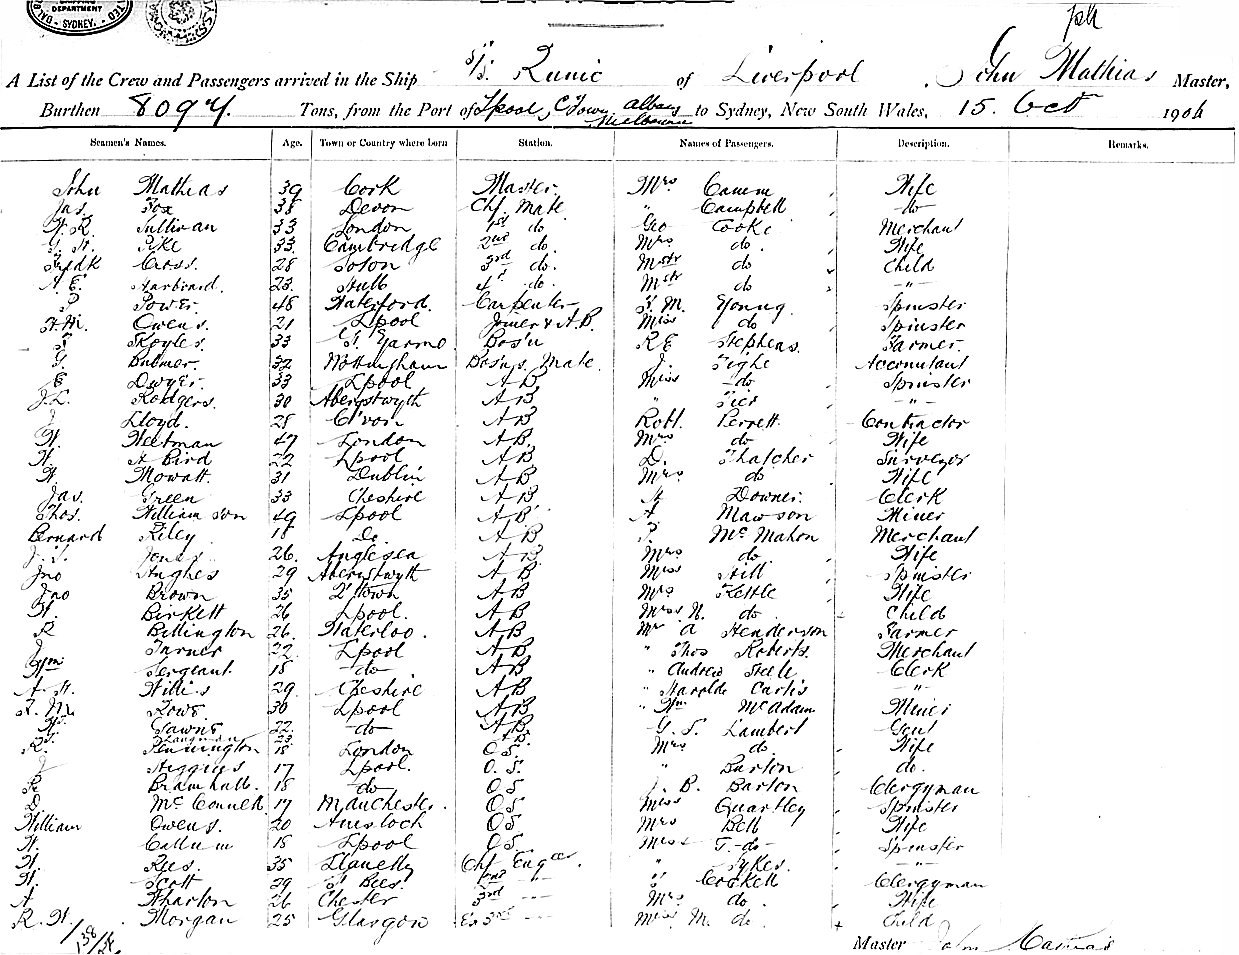 DEPARTMENT
SYDNEY.
S/S. Runic of Liverpool John Mathias
A List of the Crew and Passengers arrived in the Ship of , Master,
Burthen 8094. Tons, from the Port of L'pool, C'Town, Albany Melbourne to Sydney, New South Wales, 15. Oct 1904
Seamen's Names. Age. Town or Country where born Station. Names of Passengers. Description. Remarks.
John Mathias 39 Cork Master. Mrs Wife
Jas. Fox 38 Devon Chf. Mate " Campbell do
W. R. Sullivan 33 London 1st do Geo Cooke Merchant
Pike 33 Cambridge 2nd do. Mrs do. Wife
Fredk Cross. 28 Soton 3rd do. Mstr do Child
A. E. Harbord. 23. Hull 4th do. Mstr do -"-
P. Power. 48 Waterford. Carpenter M. Young Spinster
Owens. 21 L'pool Joiner & A.B. Miss do Spinster
Royles. 33 G. Yarmo Bos'n R E Stephens. Farmer.
G. Bulmer. 32 Nottingham Bos'ns Mate. J. Tighe Accountant
E Dwyer. 33 L'pool A B Miss do Spinster
J. L. Rodgers. 30 Aberystwyth A B " -"-
J Lloyd. 28 C'von A B Robt. Perrett Contractor
W. Weetman 47 London A B. Mrs do Wife
W. A Bird 22 L'pool A B D. Thatcher Surveyor
W Mowatt. 31 Dublin A B Mrs do Wife
Jas. Green 33 Cheshire A B Downer. Clerk
Thos. Williamson 49 L'pool A B A Mawson Miner
Bernard Riley 18 Do. A B P. McMahon Merchant
Jones 26. Anglesea A B. Mrs do Wife
Jno Hughes 29 Aberystwyth A B Miss Hill Spinster
Jno Brown 35 Q'town A B Mrs Kettle Wife
W. Birkett 26 L'pool. A B Miss N. do Child
R Billington 26. Waterloo. A B Mr A Henderson Farmer
J Turner 22. L'pool A B " Thos Roberts. Merchant
Wm Sergeant 18 do A B " Andrew Steele Clerk
A. H. Willis 29. Cheshire A B " Harolde Curtis -"-
R. M. Rowe 30 L'pool A B " Wm McAdam Miner
W. 22. do A B. G. S. Lambert Gent
R. Pennington 18 London O S. Mrs do. Wife
J Higgins 17 L'pool. O. S. " Burton do.
R. Bramhall. 18 do O S J. B. Barton Clergyman
D. McConnell 17 Manchester. O S Miss Quartley Spinster
William Owens. 20 Amlwch O S Mrs Bell Wife
W. Callum 18 L'pool O S. Miss T. do Spinster
W. Rees. 35 Llanelly Chf Engeer. " Sykes. -"-
W. Scott 29 St Bees. 2nd -"- Cockell Clergyman
A Wharton 26 Chester 3rd -"- Mrs do Wife
R. W. Morgan 25 Glasgow Ex 3rd -"- Miss M. do. Child
138/24
Master John Mathias